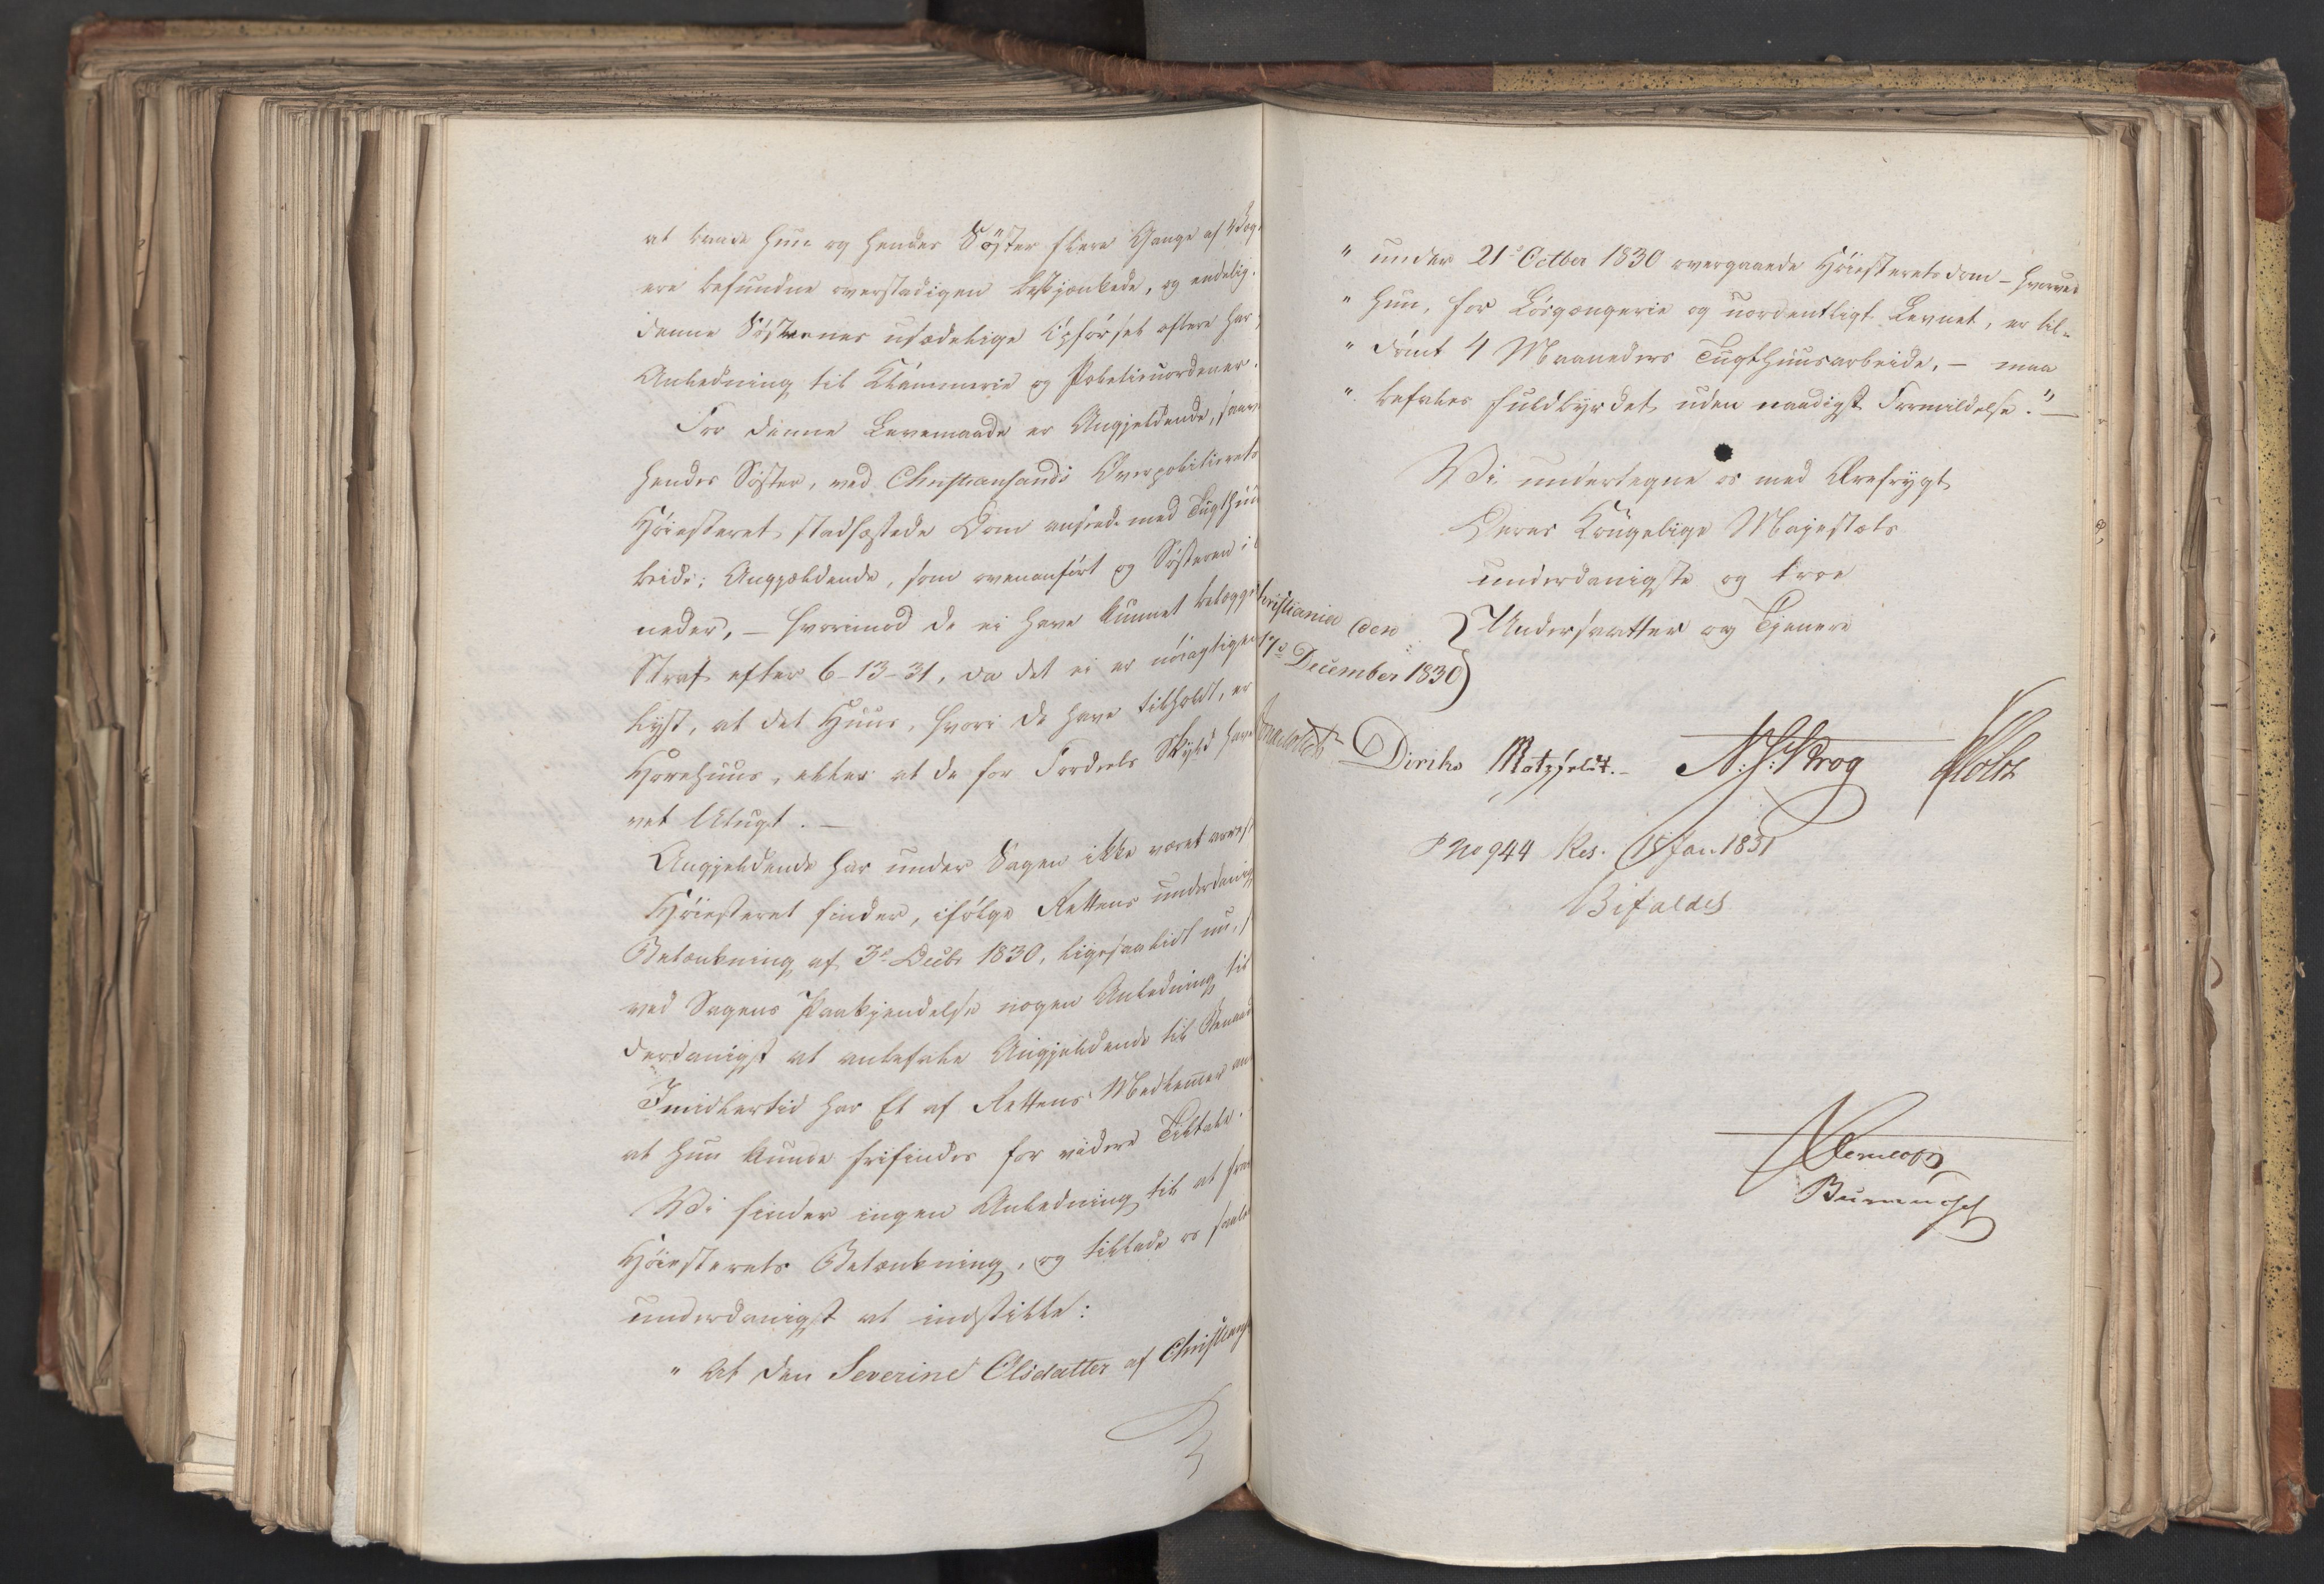 at baade hun og hendes Søster flere Gange af Vægt
ere befundne overstadigen beskjænkede, og endelig
denne Søstrenes usædelige Opførsel oftere har
Anledning til Klammerie og Politieuordener.
For denne Levemaade er Angjeldende, saav
hendes Søster, ved Christiansands Overpolitierets
Høiesteret stadfæstede Dom anseede med Tugthuu
beide; Angjældende, som ovenanført og Søsteren i
neder, – hvorimod de ei have kunnet belægg
Straf efter 6–13–31, da det ei er nøiagtigen
lyst, at det Huus, hvori de have tilholdt, er
Horehuus, eller at de for Fordeels Skyld have
vet Utugt. –
Angjeldende har under Sagen ikke været arrest
Høiesteret finder, ifølge Rettens underdanig
Betænkning af 3d Decbr 1830, ligesaalidt nu,
ved Sagens Paakjendelse nogen Anledning til
derdanigst at anbefale Angjeldende til Benaad
Imidlertid har Et af Rettens Medlemmer
at hun kunde frifindes for videre Tiltale.
Vi finder ingen Anledning til at fra
Høiesterets Betænkning, og tillade os saale
underdanigst at indstille:
" At den Severine Olsdatter af Christians
" under 21d October 1830 overgaaede Høiesteretsdom – hvorved
" hun, for Løsgængerie og uordentligt Levnet, er til-
" dømt 4 Maaneders Tugthuusarbeide, – maa
" befales fuldbyrdet uden naadigst Formildelse." –
Vi undertegne os med Ærefrygt
Deres Kongelige Majestæts
underdanigste og troe
Undersaatter og Tjenere
hristiania den
17d December 1830
Diriks Motzfeldt. N. J. Krog Holst
P No 944 Res. 15 Jan 1831
Bifaldes